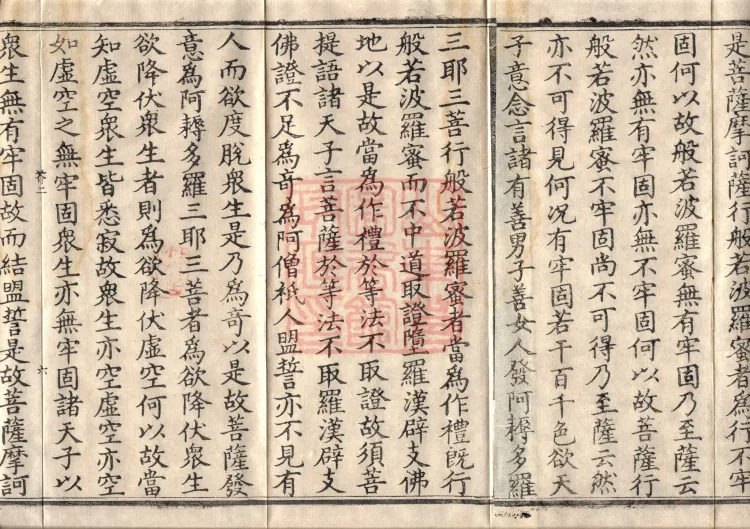 是菩薩摩訶薩行般若波羅蜜者為行不牢
固何以故般若波羅蜜無有牢固乃至薩云
然亦無有牢固亦無不牢固何以故菩薩行
般若波羅蜜不牢固尚不可得乃至薩云然
亦不可得見何況有牢固若干百千色欲天
子意念言諸有善男子善女人發阿耨多羅
三耶三菩行般若波羅蜜者當為作禮旣行
般若波羅蜜而不中道取證墮羅漢辟支佛
地以是故當為作禮於等法不取證故須菩
提語諸天子言菩薩於等法不取羅漢辟支
佛證不足為奇為阿僧祇人盟誓亦不見有
人而欲度脫衆生是乃為奇以是故菩薩發
意為阿耨多羅三耶三菩者為欲降伏衆生
欲降伏衆生者則為欲降伏虛空何以故當
知虛空衆生皆悉寂故衆生亦空虛空亦空
如虛空之無牢固衆生亦無牢固諸天子以
卷二 六
衆生無有牢固故而結盟誓是故菩薩摩訶